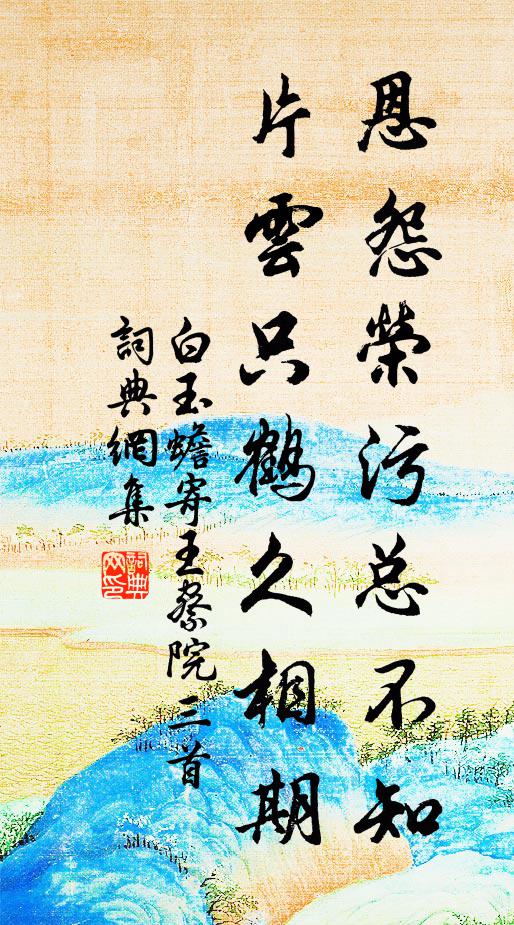 恩怨榮污总不知
片雲只鶴久相期
白玉蟾寄王察院三首
詞典網集
詞典